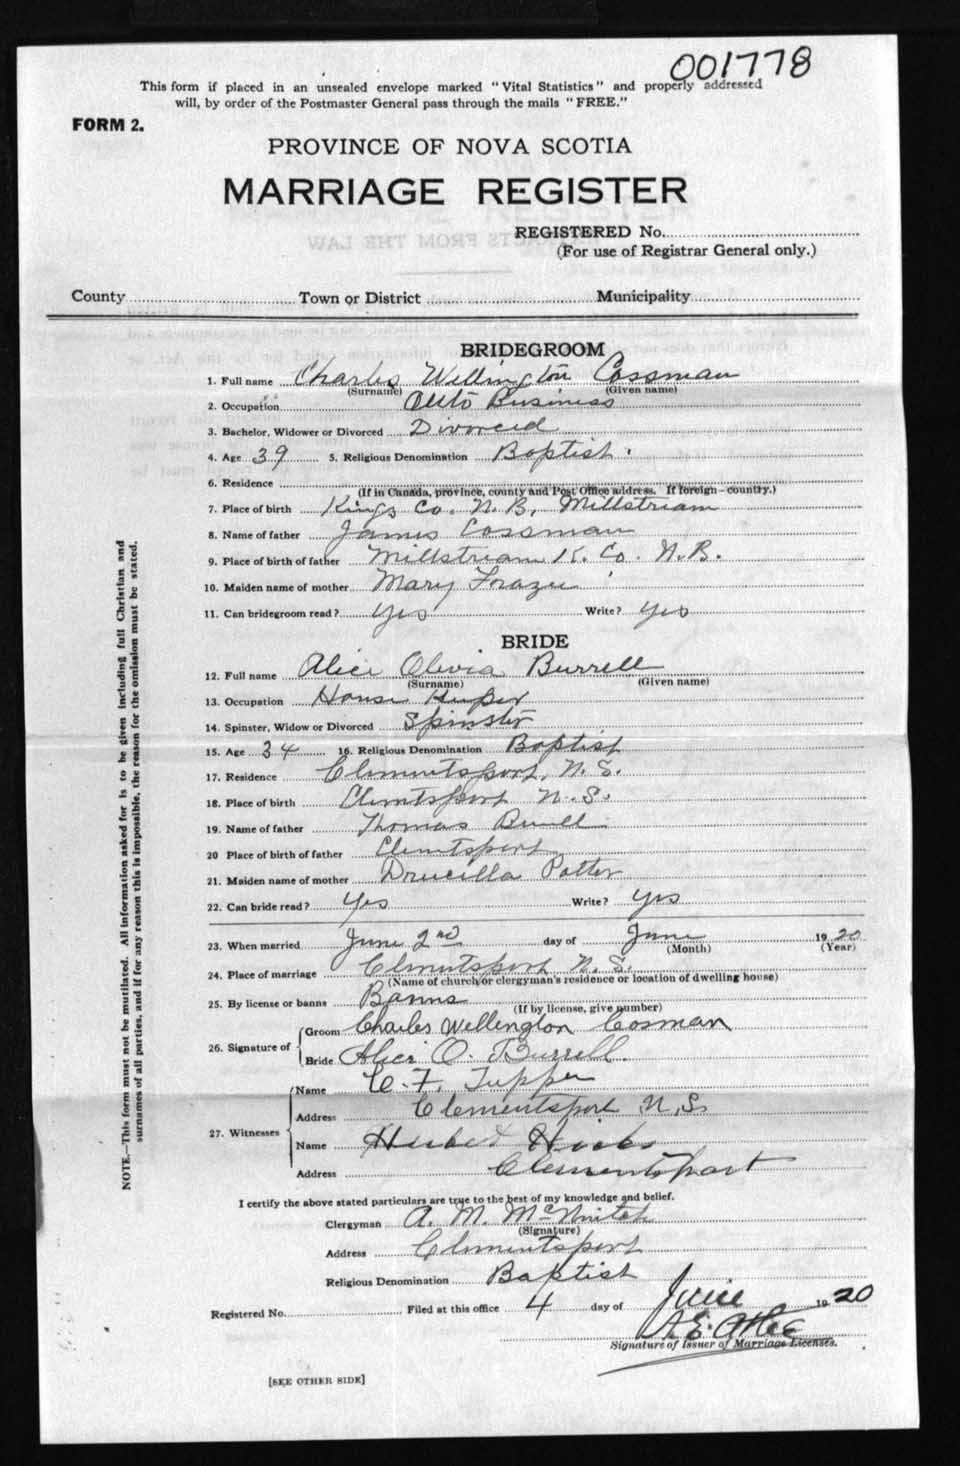 001778
This form if placed in an unsealed envelope marked "Vital Statistics" and properly addressed
will, by order of the Postmaster General pass through the mails "FREE."
FORM 2.
PROVINCE OF NOVA SCOTIA
MARRIAGE REGISTER
REGISTERED No.
(For use of Registrar General only.)
County Town or District Municipality
BRIDEGROOM
1. Full name Charles Wellington Cossman
(Surname) (Given name)
2. Occupation Auto Business
3. Bachelor, Widower or Divorced Divorced
4. Age 39 5. Religious Denomination Baptist
6. Residence
(If in Canada, province, county and Post Office address. If foreign—country.)
7. Place of birth Kings Co. N.B. Millstream
8. Name of father James Cossman
9. Place of birth of father Millstream K. Co. N.B.
10. Maiden name of mother Mary
11. Can bridegroom read? Yes Write? Yes
BRIDE
12. Full name Alice Olivia Burrell
(Surname) (Given name)
13. Occupation House Keeper
14. Spinster, Widow or Divorced Spinster
15. Age 34 16. Religious Denomination Baptist
17. Residence Clementsport, N.S.
18. Place of birth Clemtsport N.S.
19. Name of father Thomas Burrell
20 Place of birth of father Clemtsport
21. Maiden name of mother Drucilla Potter
22. Can bride read? Yes Write? Yes
23. When married June 2nd day of June 1920
(Month) (Year)
24. Place of marriage Clementsport N.S.
(Name of church or clergyman's residence or location of dwelling house)
25. By license or banns Banns
(If by license, give number)
26. Signature of Groom Charles Wellington Cosman
Bride Alice O. Burrell.
27. Witnesses Name C. F. Tupper
Address Clementsport N.S.
Name Herbert Hicks
Address Clementsport
I certify the above stated particulars are true to the best of my knowledge and belief.
Clergyman A. M. McNintch
(Signature)
Address Clementsport
Religious Denomination Baptist
Registered No. Filed at this office 4 day of June 1920
A.E.
Signature of Issuer of Marriage Licenses.
[SEE OTHER SIDE]
NOTE.—This form must not be mutilated. All information asked for is to be given including full Christian and
surnames of all parties, and if for any reason this is impossible, the reason for the omission must be stated.